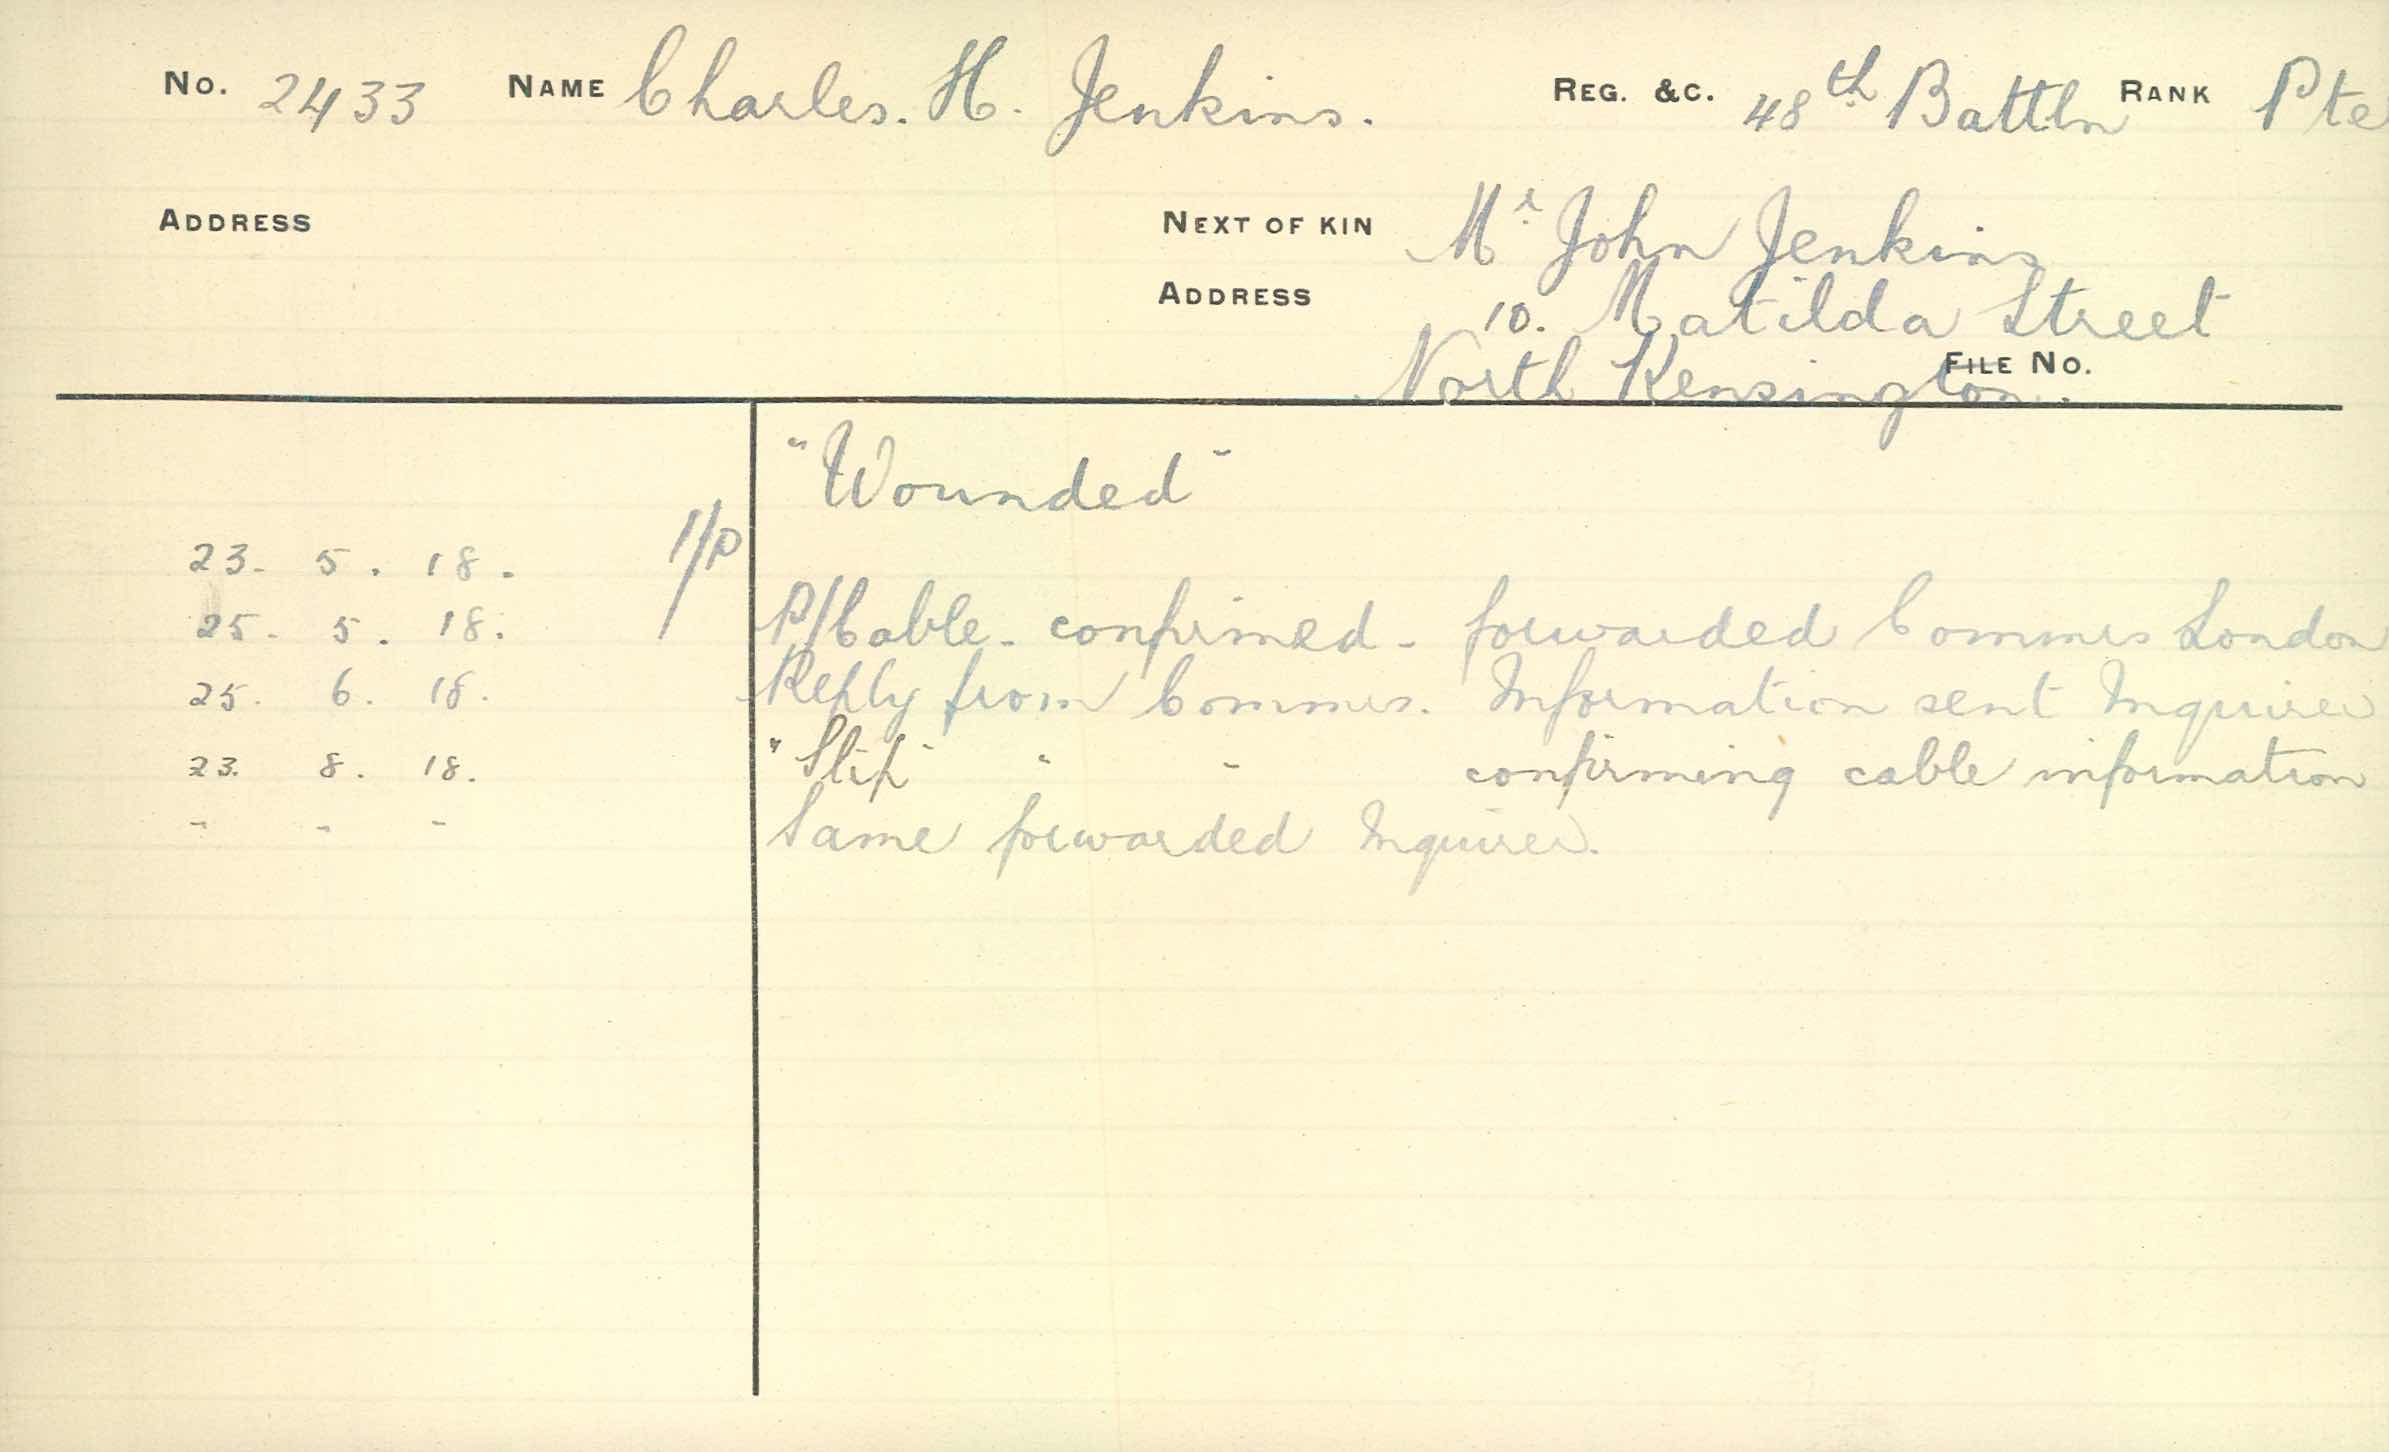 No. 2433 NAME Charles. H. Jenkins. REG. &C. 48th Battln RANK Pte
ADDRESS NEXT OF KIN Mr John Jenkins
ADDRESS 10. Matilda Street
North Kensington.
FILE No.
"Wounded"
23. 5. 18. 1/p
25. 5. 18. P/Cable - confirmed - forwarded Commrs London
25. 6. 18. Reply from Commrs. Information sent Inquirer
23. 8. 18. "Slip" " " confirming cable information
" " " Same forwarded Inquirer.